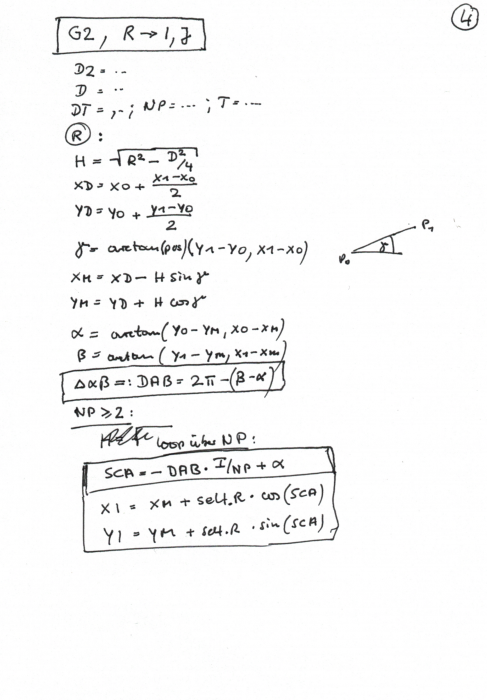 4
G2, R → 1, J
D2 = ...
D = ..
DT = ,..; NP = ...; T = ....
R :
H = √(R² - D²/4)
XD = X0 + (X1-X0)/2
YD = Y0 + (Y1-Y0)/2
γ = arctan(pos)(Y1-Y0, X1-X0)
P0 γ P1
XM = XD - H sin γ
YM = YD + H cos γ
α = arctan(Y0-YM, X0-XM)
β = arctan(Y1-YM, X1-XM)
ΔαB =: DAB = 2π - (β-α)
NP ≥ 2:
Loop über NP:
SCA = - DAB · I/NP + α
XI = XM + self.R · cos(SCA)
YI = YM + self.R · sin(SCA)